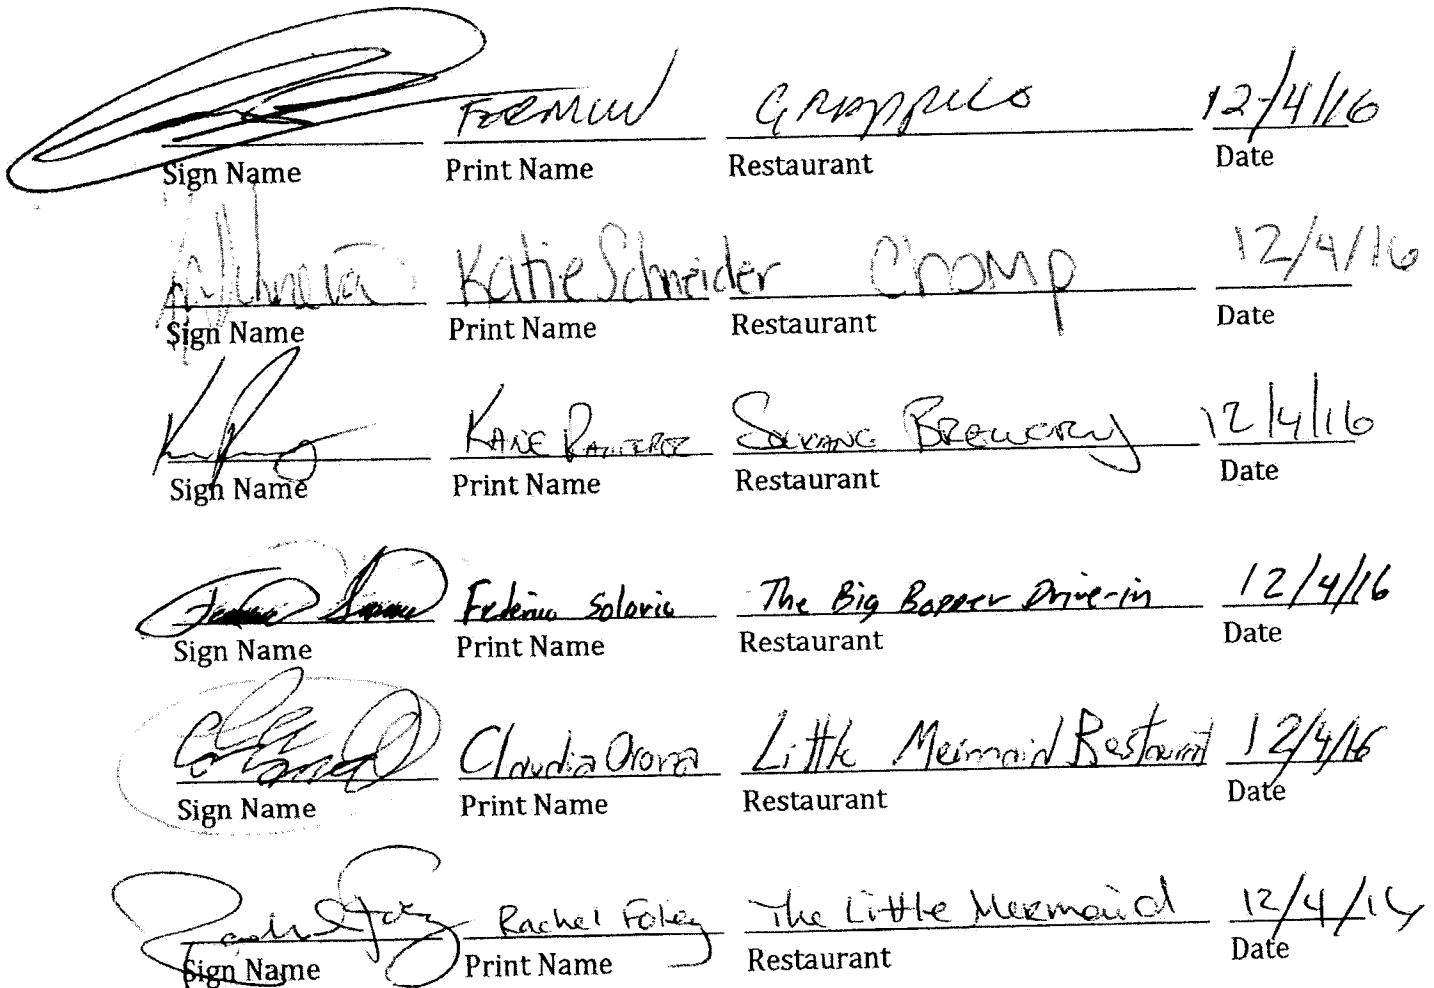 FERMIN GRAPPOLO 12/4/16
Sign Name Print Name Restaurant Date
Katie Schneider Chomp 12/4/16
Sign Name Print Name Restaurant Date
KANE RAMIREZ SOLVANG BREWERY 12/4/16
Sign Name Print Name Restaurant Date
Federico Solorio The Big Bopper Drive-in 12/4/16
Sign Name Print Name Restaurant Date
Claudia Orona Little Mermaid Restaurant 12/4/16
Sign Name Print Name Restaurant Date
Rachel Foley The Little Mermaid 12/4/16
Sign Name Print Name Restaurant Date